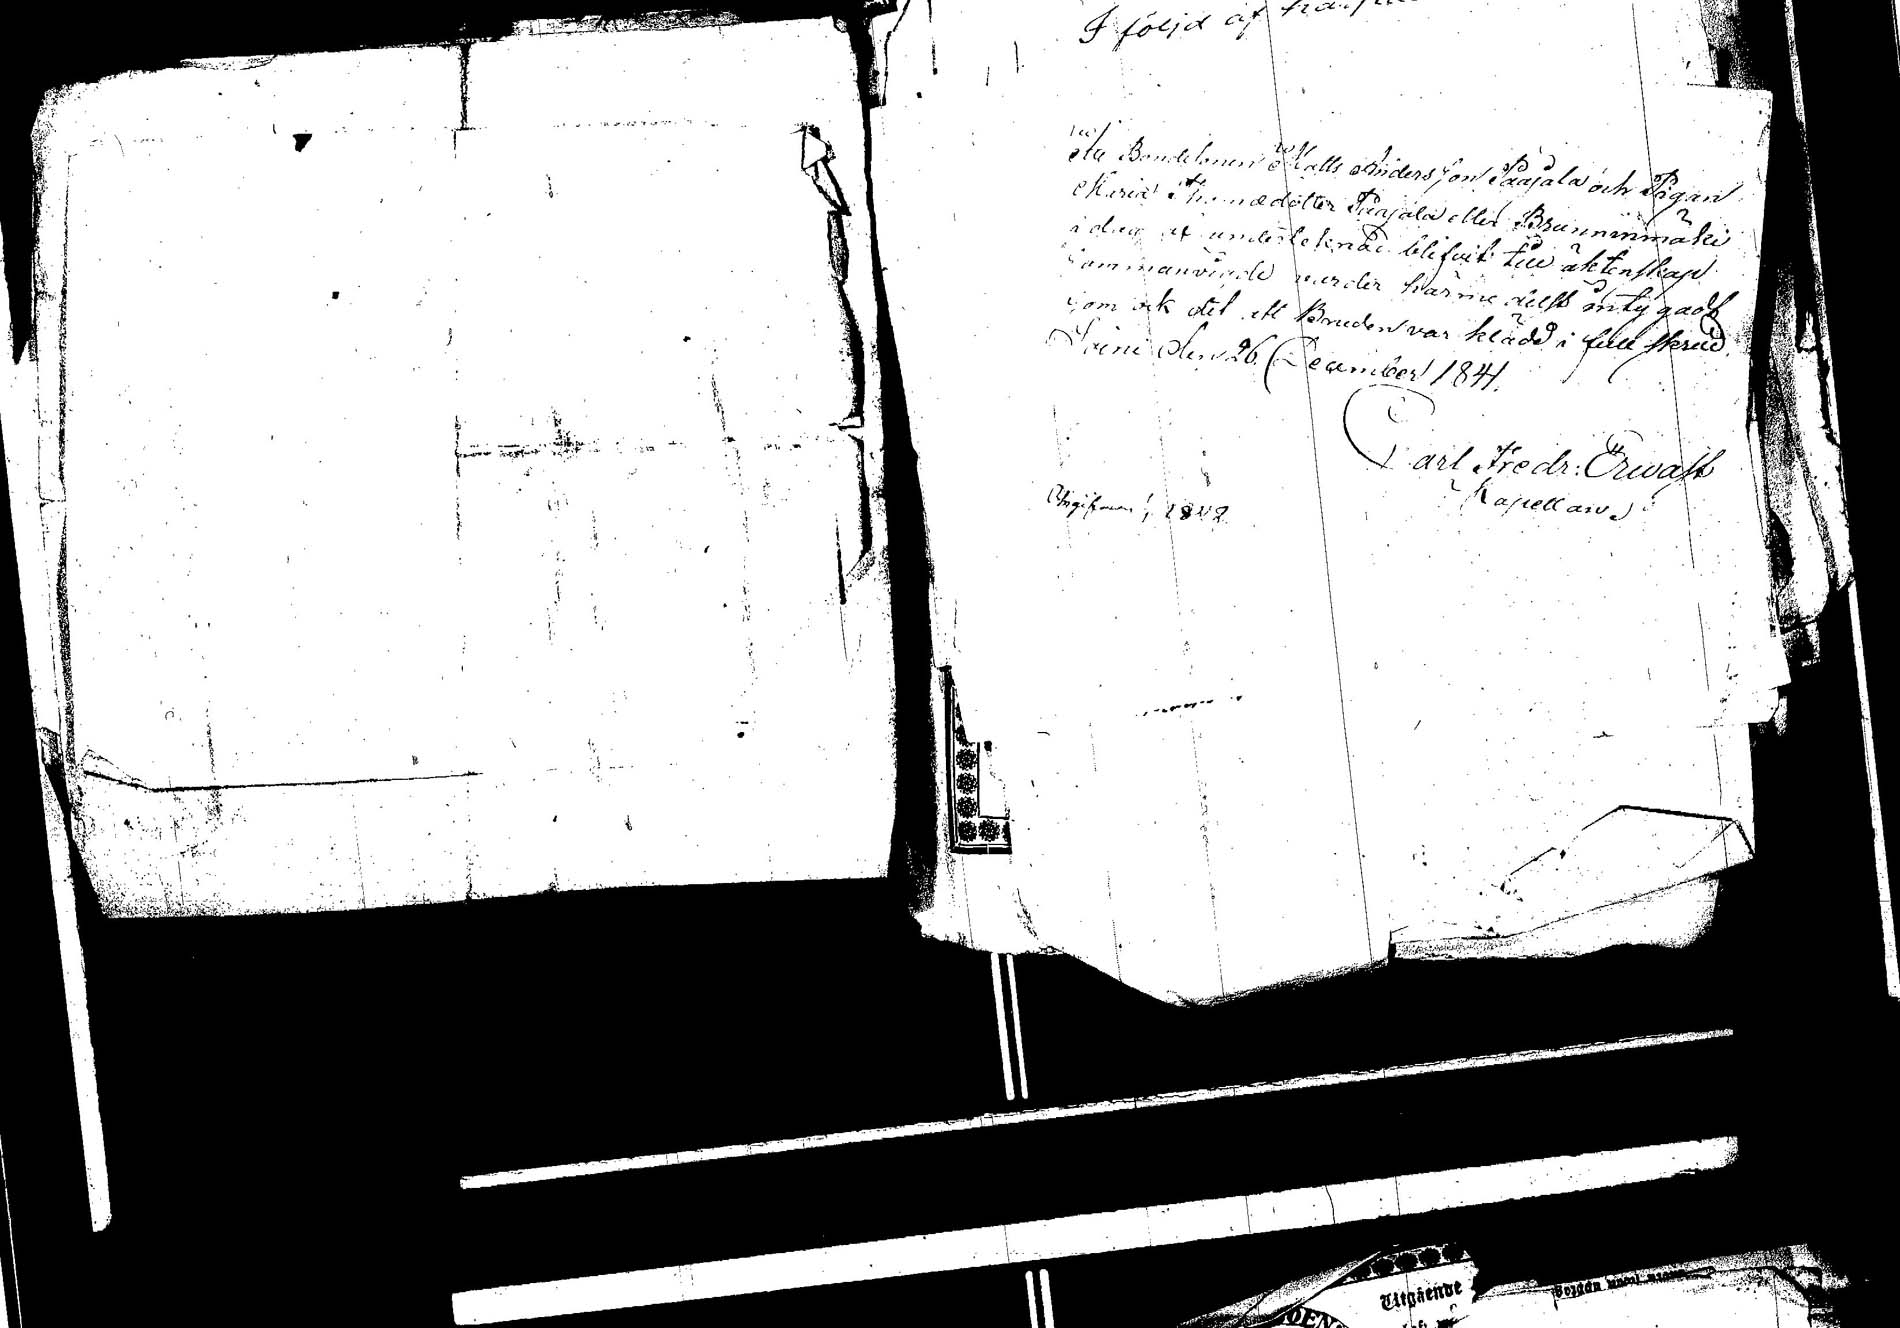 I följd af
Att Bondesonen Matts Andersson Paajala och Pigan
Maria Thomædotter Paajala eller Brunninmäki
i dag af undertecknad blifvit till äktenskap
sammanvigde varder härmedelst intygadt
som ock det att Bruden var klädd i full skrud.
Soini den 26 December 1841.
Carl Fredr: Erwast
Kapellan.
Angifven 1842
Utgående